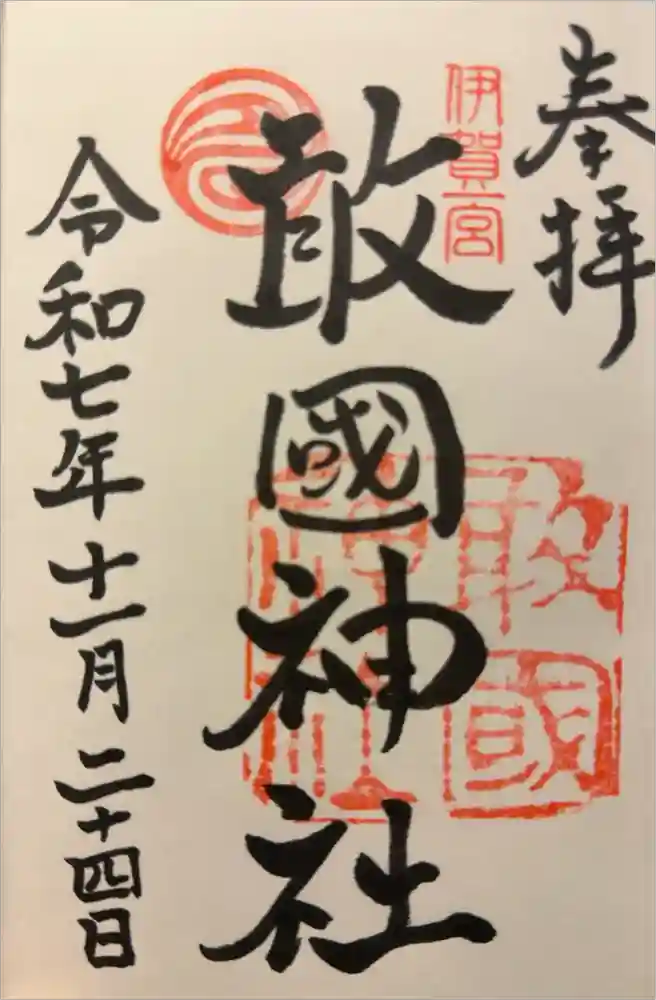 奉拝
伊賀一宮
敢國神社
敢國神社
令和七年十一月二十四日